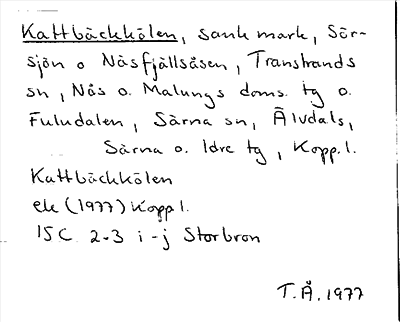 Kattbäckkölen, sank mark, Sör-
sjön o Näsfjällsåsen, Transtrands
sn, Nås o. Malungs doms. tg o.
Fuludalen, Särna sn, Älvdals,
Särna o. Idre tg, Kopp. l.
Kattbäckkölen
ek (1977) Kopp l.
15 C 2-3 i-j Storbron
T.Å. 1977